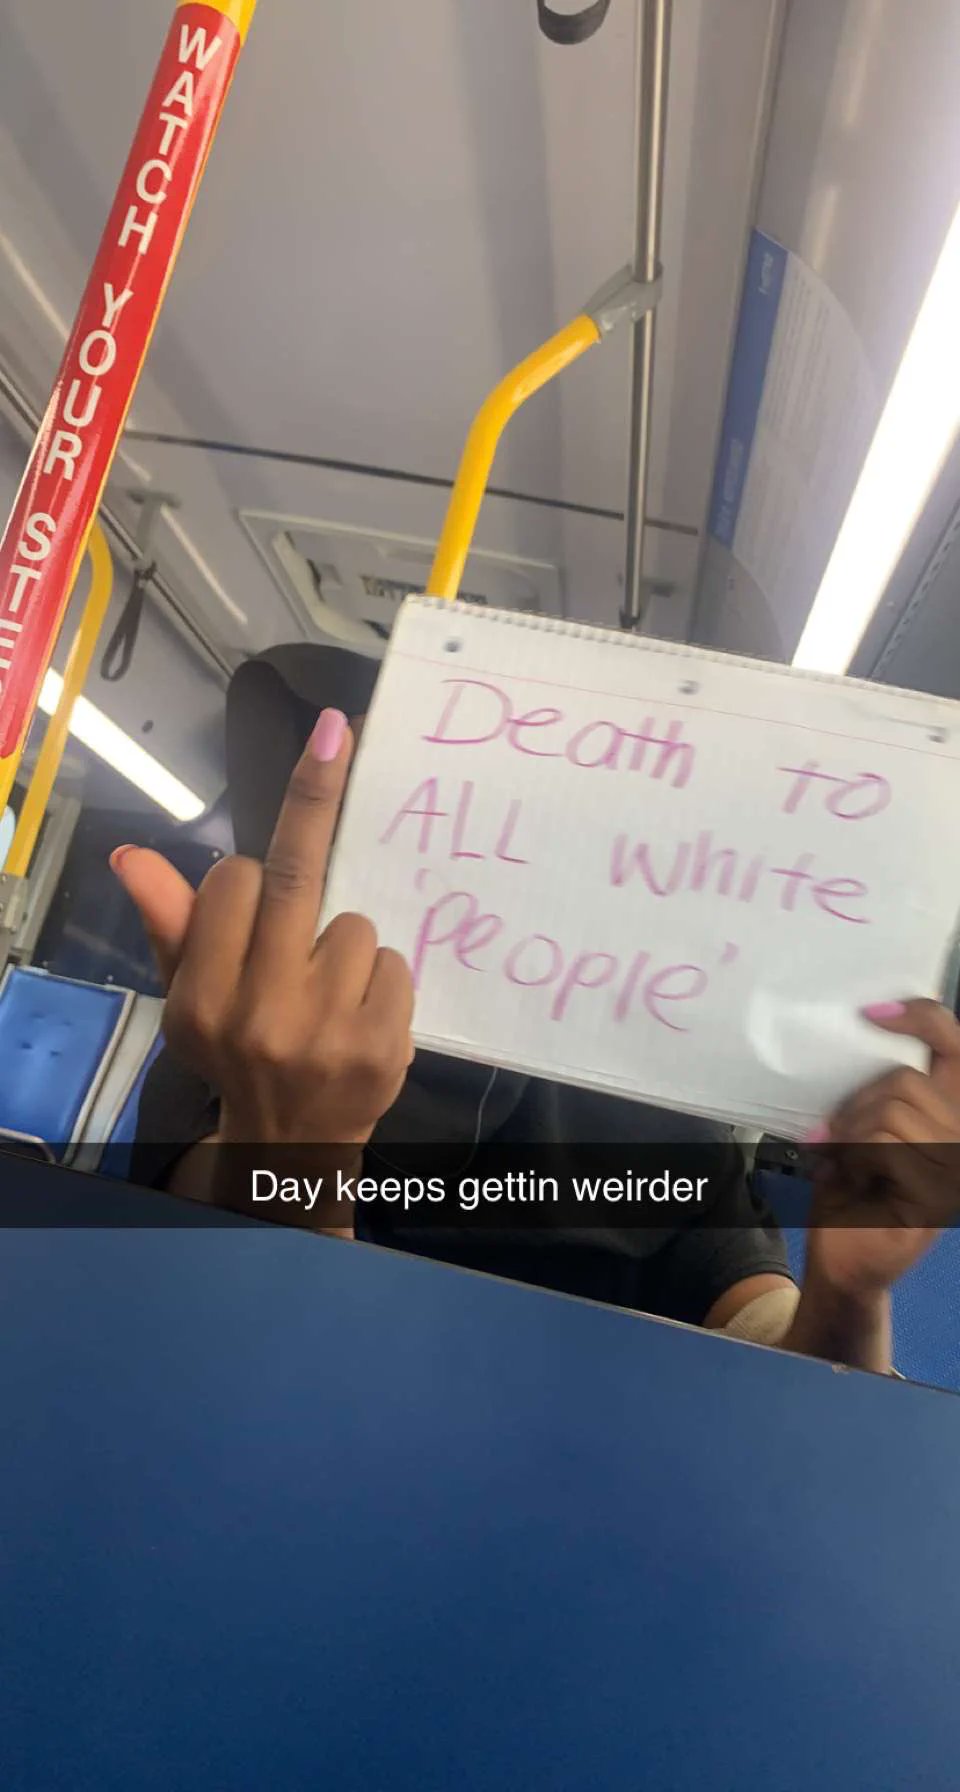 WATCH YOUR STEP
Death to
ALL white
'people'
Day keeps gettin weirder